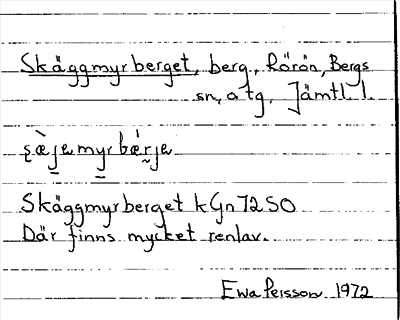 Skäggmyrberget, berg, Rörön, Bergs
sn, o tg, Jämtl. l.
Skäggmyrberget kGn72SO
Där finns mycket renlav.
Ewa Persson 1972